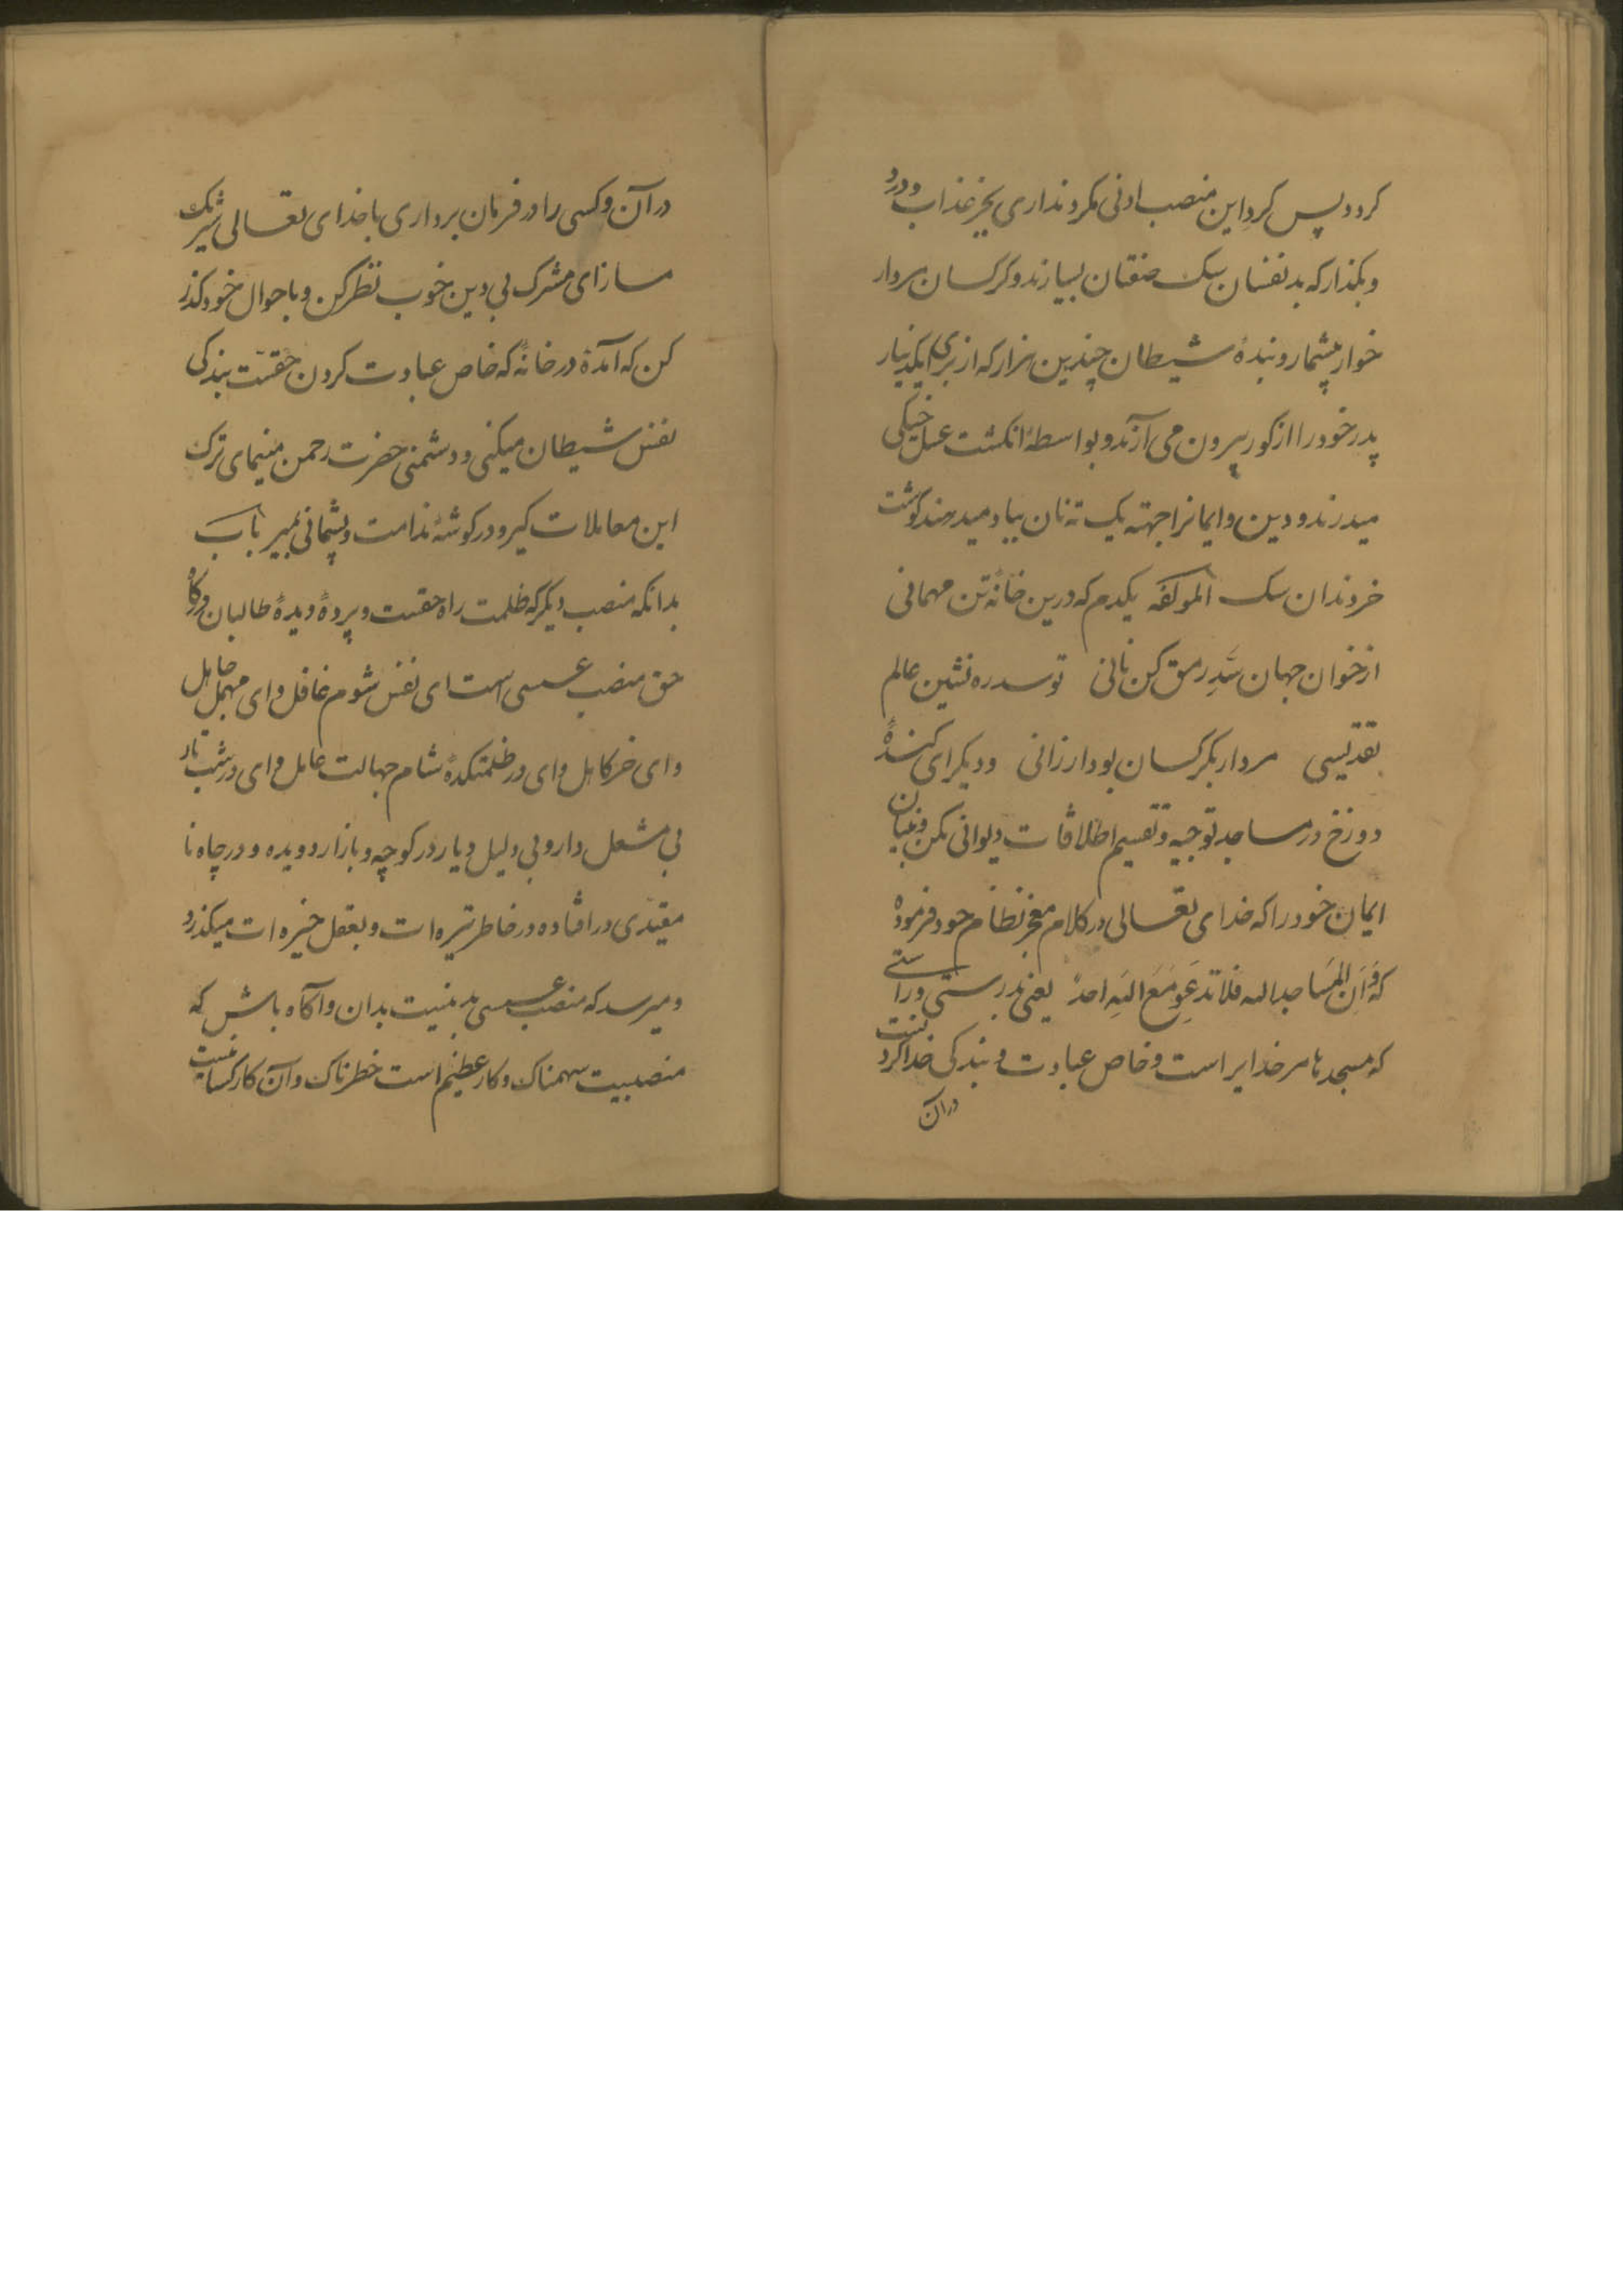 کردد پس کرد این منصب ادنی مکرد نداری بجز عذاب و درد
و بکذار که بد نفسان سک صفتان بسیارند و کرکسان مردار
خوار بیشمار و بندهٔ شیطان چندین هزار که از برای یکدینار
پدر خود را از کور بیرون می آرند و بواسطهٔ انکشت عسل خیکی
میدرند و دین و ایمانرا جهته یک ته نان بباد میدهند کوشت
خر دندان سک المولفه یکدم که درین خانهٔ تن مهمانی
از خوان جهان سَدِ رمق کن نانی تو سدره نشین عالم
تقدیسی مردار بکرکسان بود ارزانی و دیکر ای کندهٔ
دوزخ در مساجد توجیه و تقسیم اطلاقات دیوانی مکن و بنیان
ایمان خود را که خدای تعالی در کلام معجز نظام خود فرموده
که وَاَن المَساجد لله فلا تدعو مَعَ اللهِ احدً یعنی بدرستی و راستی
که مسجدها مر خدایراست و خاص عبادت و بندکی خدا کرد
در آن
در آن و کسی را در فرمان برداری با خدای تعالی شریک
مساز ای مشرک بی دین خوب نظر کن و باحوال خود کذر
کن که آمدهٔ در خانهٔ که خاص عبادت کردن حقست بندکی
نفس شیطان میکنی و دشمنی حضرت رحمن مینمای ترک
این معاملات کیر و در کوشهٔ ندامت و پشمانی بمیر باب
بدانکه منصب دیکر که ظلمت راه حقست و پردهٔ دیدهٔ طالبان درکاه
حق منصب عسسی است ای نفس شوم غافل و ای مهمل جاهل
و ای خر کاهل و ای در ظلمتکدهٔ شام جهالت عامل و ای در شب تار
بی مشعل دار و بی دلیل و یار در کوچه و بازار دویده و در چاه نا
مقیدی در افتاده در خاطر تیره ات و بعقل خیره ات میکذرد
و میرسد که منصب عسسی بد نیست بدان و آکاه باش که
منصبیست سهمناک و کار عظیم است خطرناک و آن کار کسانیست